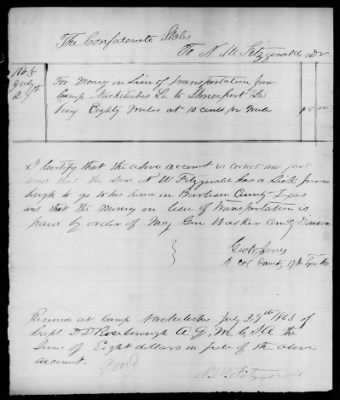 The Confederate States
To N. W. Fitzgerald Dr
1863
July
29th
For Money in Lieu of transportation from
Camp Nachitoches La to Shreveport La
being Eighty miles at 10 cents per mile
$8.00
I Certify that the above account is correct and just
and that the said N W Fitzgerald has a Sick fur
lough to go to his home in Harrison County Texas
and that the money in lieu of transportation is
by order of Maj Gen Walker Division
Geo W Jones
Lt Col Comdg 17th Tex
Received at Camp Nachitoches July 29th 1863 of
Capt Rosebrough A. Q. M. C. S. A. the
Sum of Eight dollars in full of the above
account.
N. W. Fitzgerald